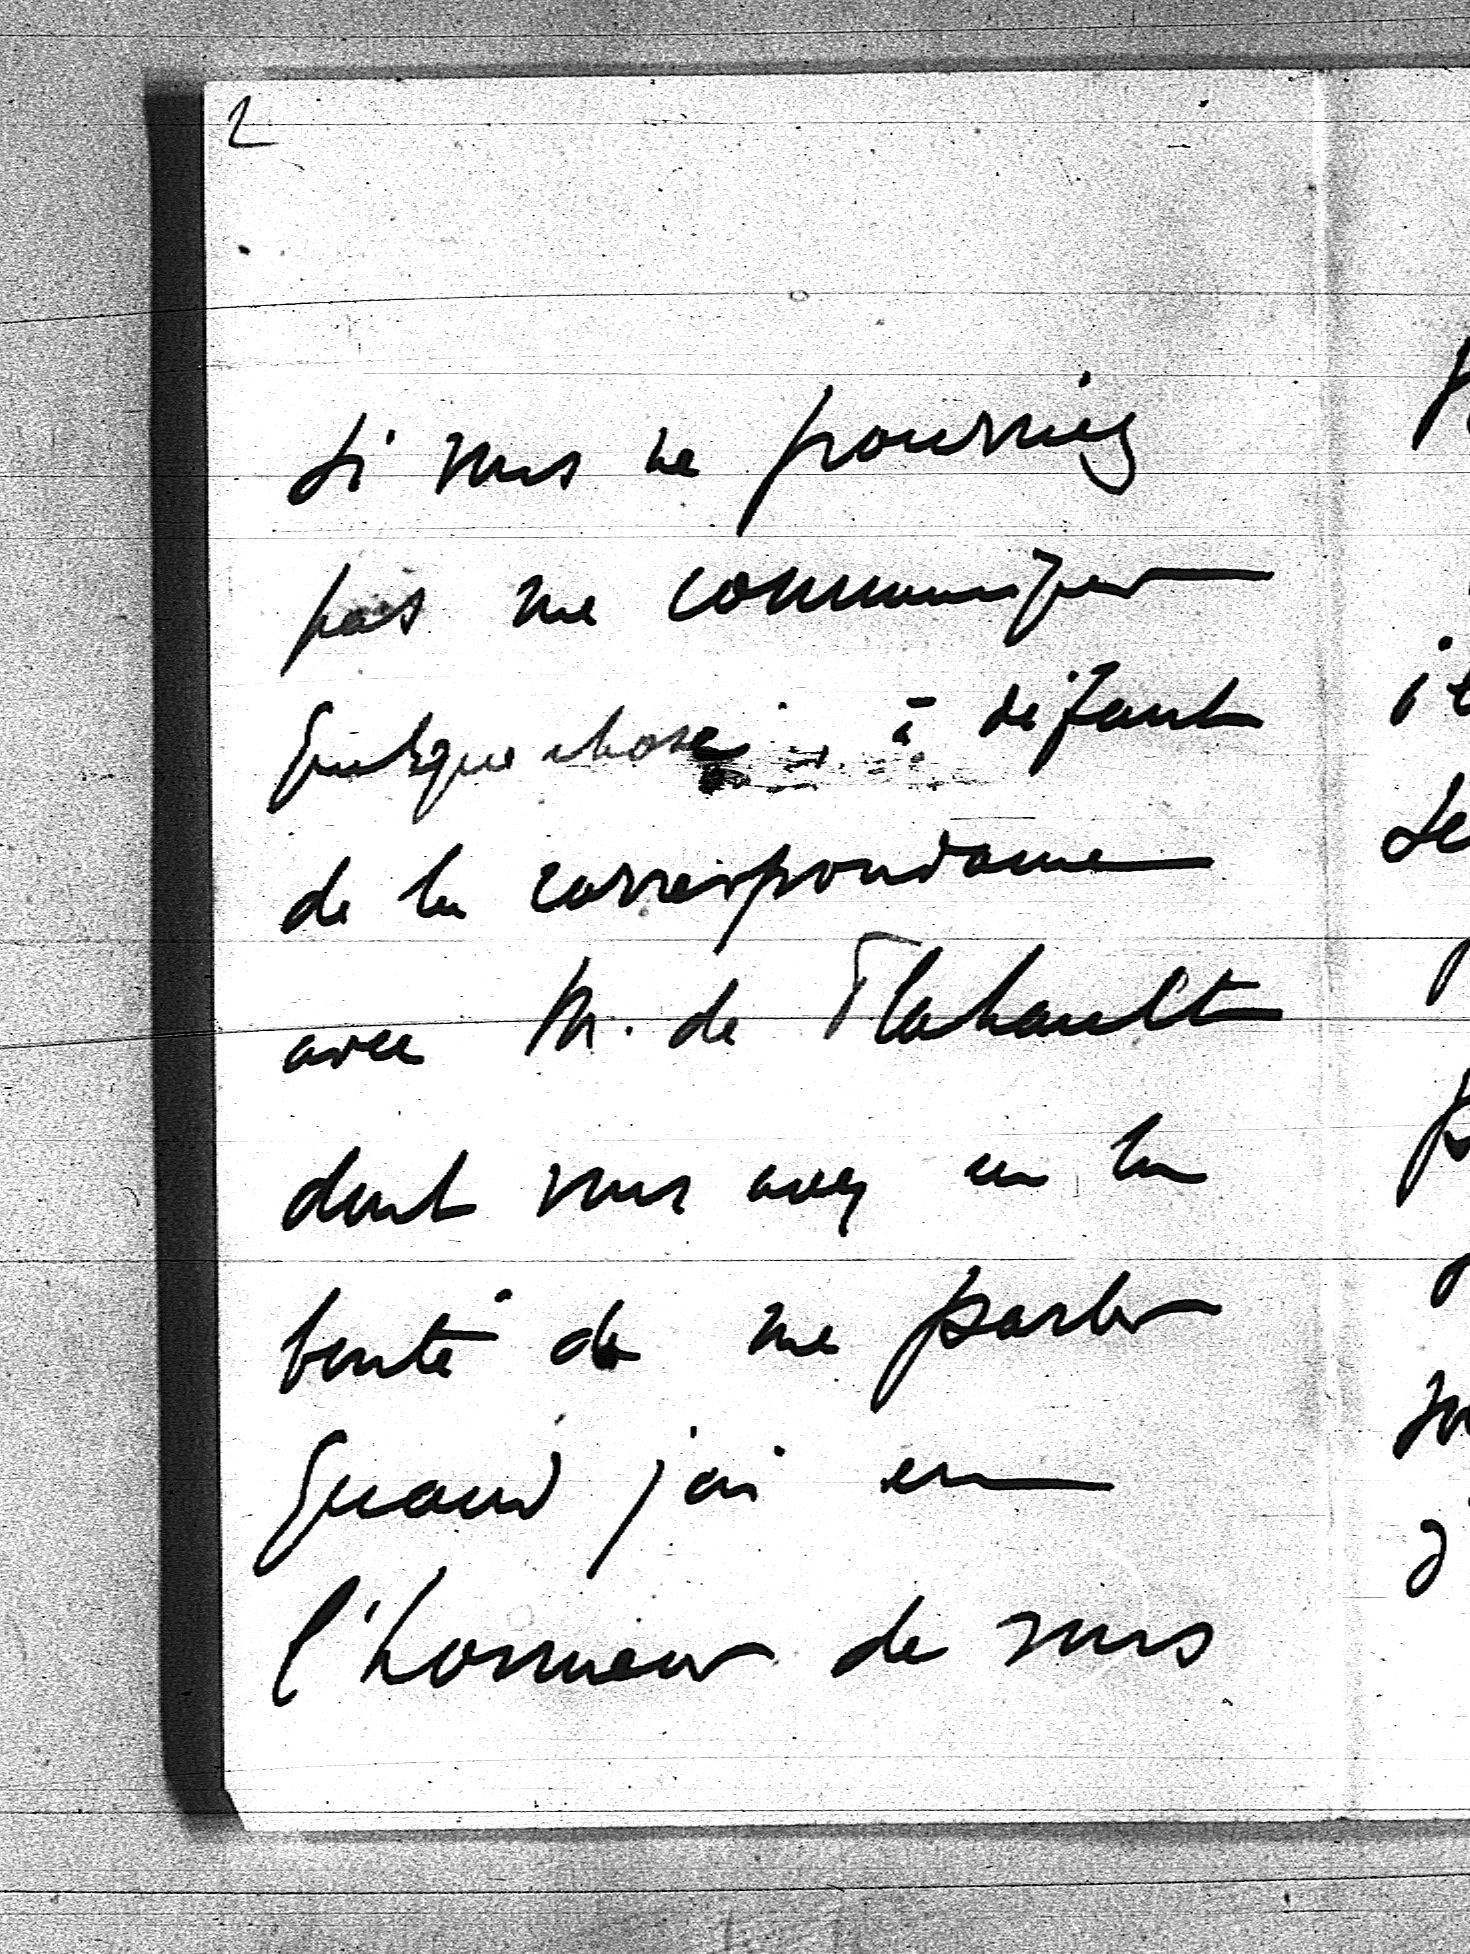 2
si vous ne pourriez
pas me communiquer
quelque chose à défaut
de la correspondance
avec M. de Flahault
dont vous avez eu la
bonté de me parler
quand j'ai eu
l'honneur de vous